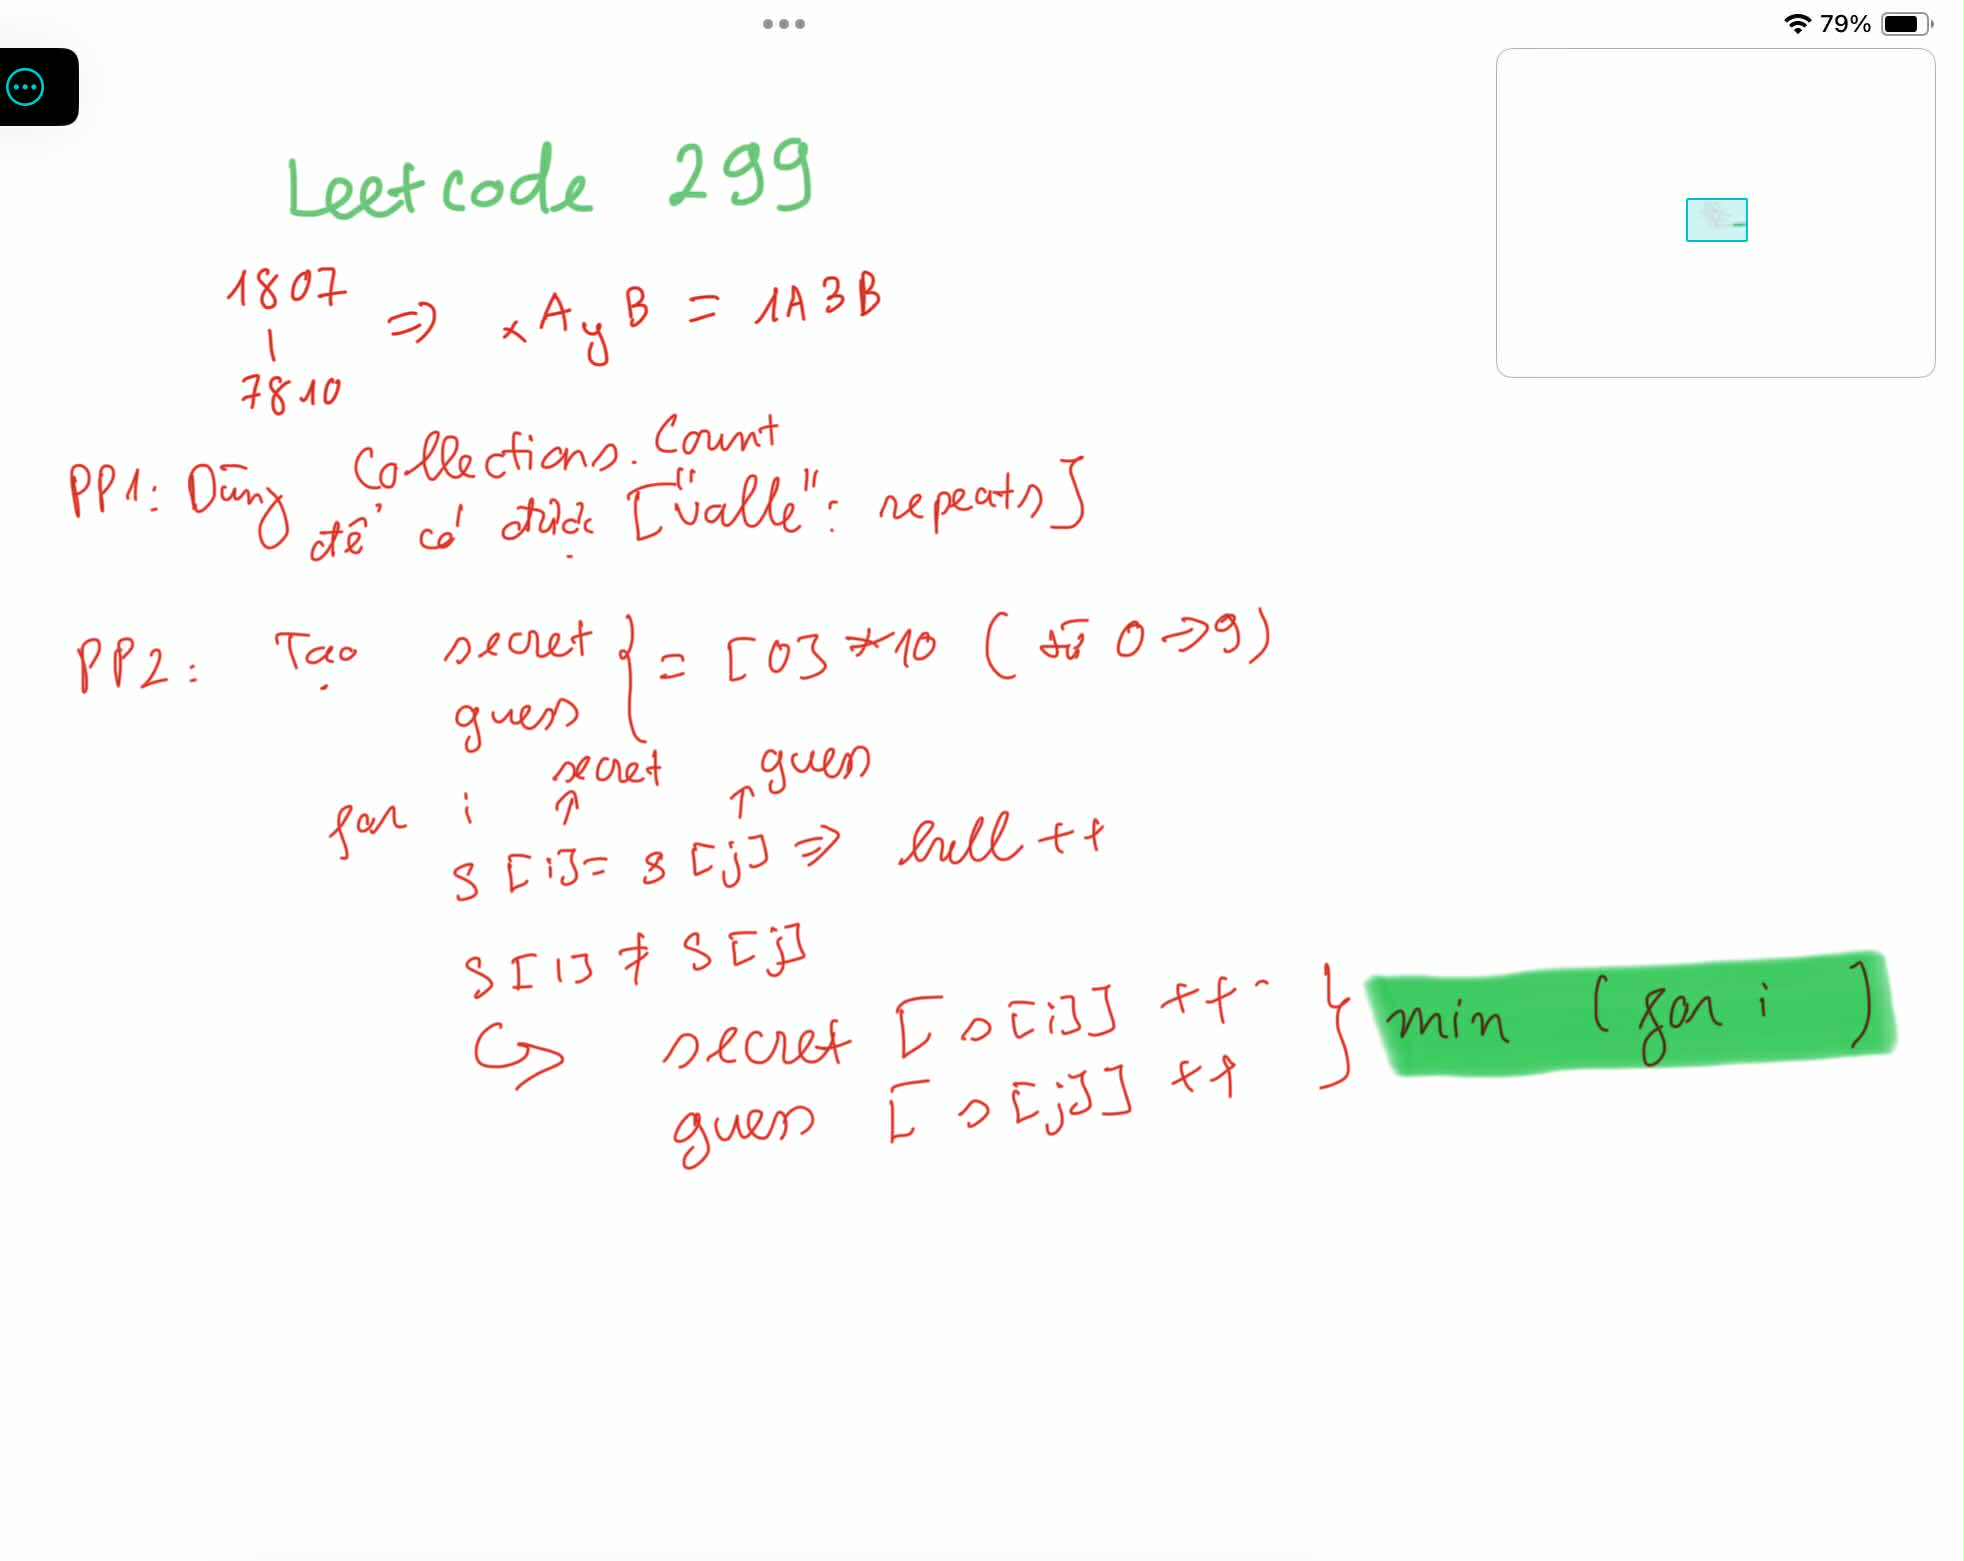 79%
Leetcode 299
1807
⇒ xAyB = 1A3B
7810
PP1: Dùng Collections. Count
để có được ["valle": repeats]
PP2: Tạo secret
guess } = [0] * 10 (từ 0 ⇒ 9)
secret guess
for i ↑ ↑
s[i] = s[j] ⇒ bull ++
s[i] ≠ s[j]
↪ secret [s[i]] ++
guess [s[j]] ++ } min (for i )